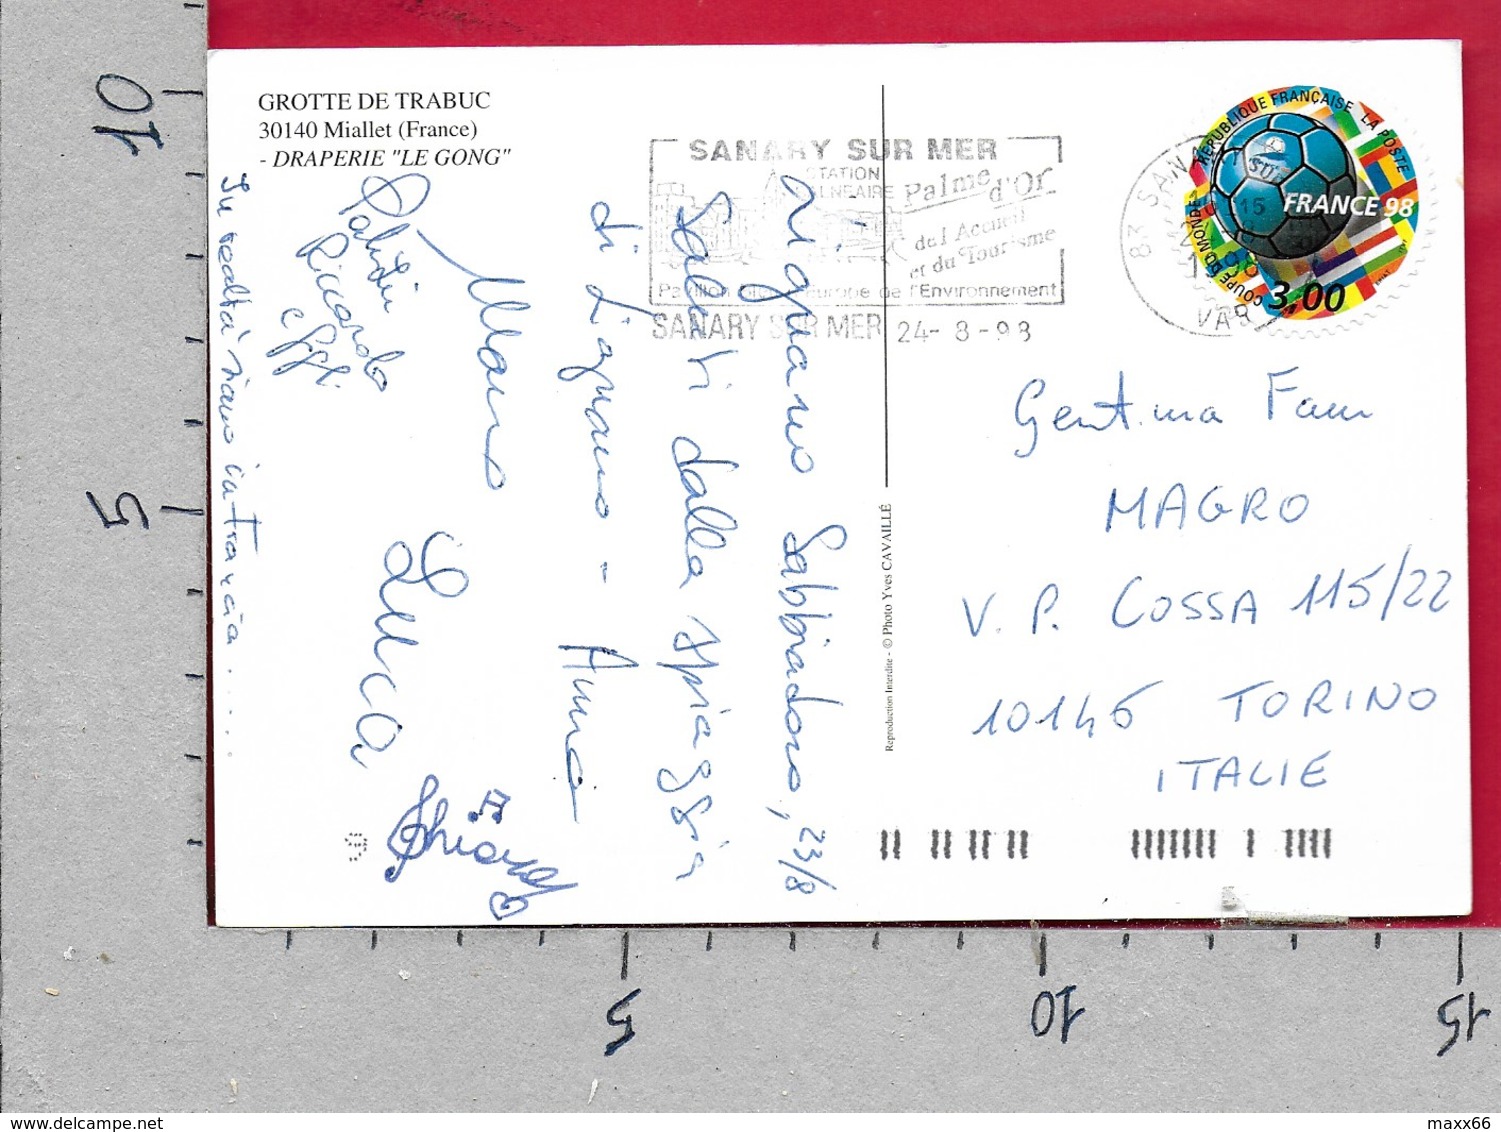 GROTTE DE TRABUC
30140 Miallet (France)
- DRAPERIE "LE GONG"
SANARY SUR MER
STATION
BALNEAIRE
Palme d'Or
de l'Accueil
et du Tourisme
Pavillon Bleu d'Europe de l'Environnement
SANARY SUR MER 24-8-98
83 SANARY SUR
15
1998
VAR
RÉPUBLIQUE FRANÇAISE LA POSTE
COUPE DU MONDE
FRANCE 98
3,00
Lignano Sabbiadoro, 23/8
Saluti dalla spiaggia
di Lignano - Anna
Mauro
Luca
Saluti
Riccardo
e
In realtà siamo in Francia......
Reproduction Interdite - © Photo Yves CAVAILLÉ
Gent.ma Fam
MAGRO
V. P. COSSA 115/22
10146 TORINO
ITALIE
10
5
5
10
15
www.delcampe.net
maxx66